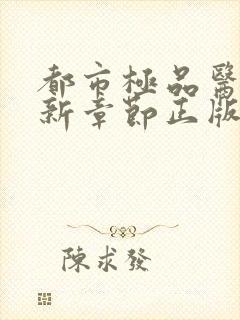 都市極品醫
新章節正版
陳求發